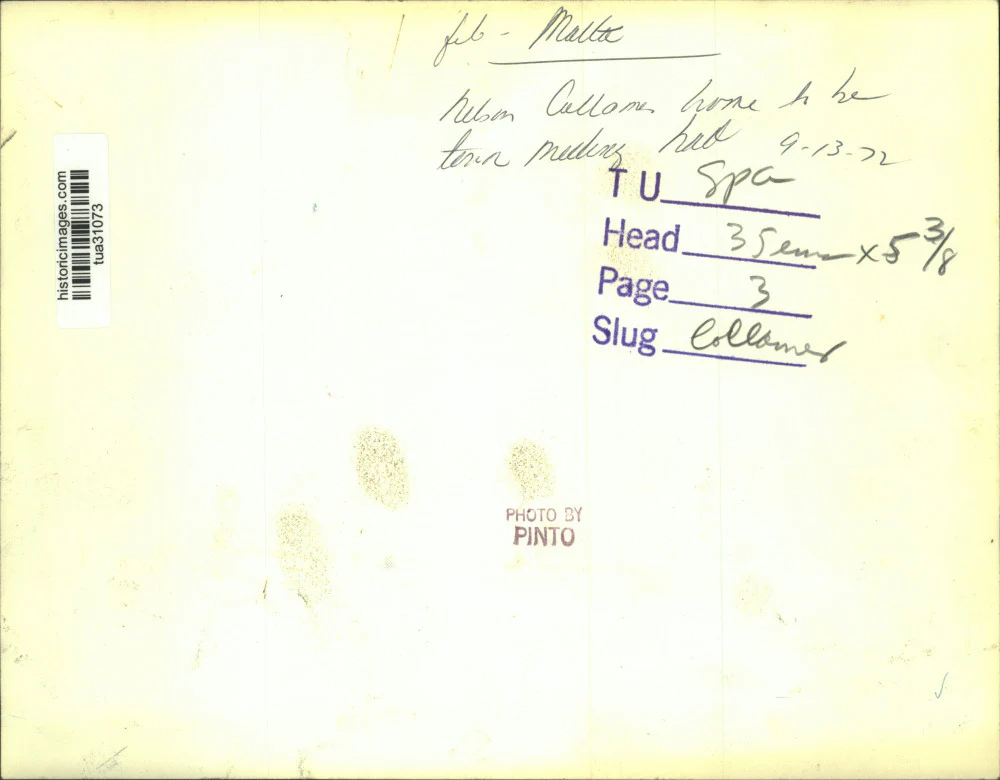 file - Malta
Nelson Collamer home to be
town meeting hall 9-13-72
TU Spa
Head 35 ems x 5 3/8
Page 3
Slug Collamer
historicimages.com
tua31073
PHOTO BY
PINTO